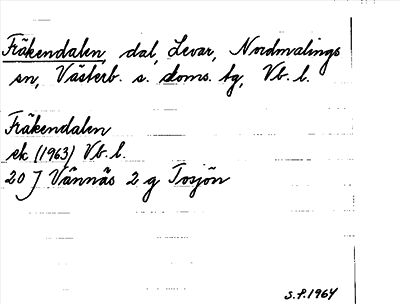 Fräkendalen, dal, Levar, Nordmalings
sn, Västerb. s. doms. tg, Vb. l.
Fräkendalen
ek (1963) Vb. l.
20 J Vännäs 2 g Tosjön
S.P. 1964